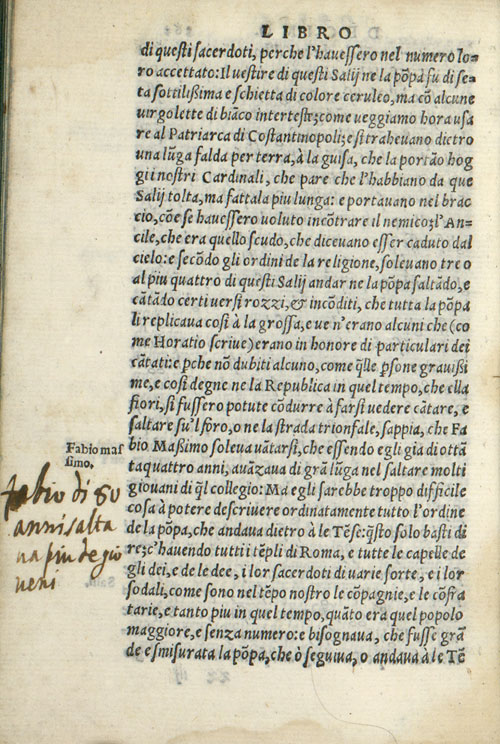 LIBRO
di questi sacerdoti, perche l'hauessero nel numero lo=
ro accettato: Il uestire di questi Salij ne la põpa fu di se=
ta sottilißima e schietta di colore ceruleo, ma cõ alcune
uirgolette di biãco intertesti; come ueggiamo hora usa
re al Patriarca di Costantinopoli; e si traheuano dietro
una lũga falda per terra, à la guisa, che la portão hog
gi i nostri Cardinali, che pare che l'habbiano da que
Salij tolta, ma fattala piu lunga: e portauano nel brac
cio, cõe se hauessero uoluto incõtrare il nemico; l'An=
cile, che era quello scudo, che diceuano esser caduto dal
cielo: e secõdo gli ordini de la religione, soleuano tre o
al piu quattro di questi Salij andar ne la põpa saltãdo, e
cãtãdo certi uersi rozzi, & incõditi, che tutta la põpa
li replicaua cosi à la grossa, e ue n'erano alcuni che (co
me Horatio scriue) erano in honore di particulari dei
cãtati: e pche nõ dubiti alcuno, come q̃lle psone grauißi
me, e cosi degne ne la Republica in quel tempo, che ella
fiorì, si fussero potute cõdurre à farsi uedere cãtare, e
saltare su'l foro, o ne la strada trionfale, sappia, che Fa
bio Maßimo soleua uãtarsi, che essendo egli già di ottã
ta quattro anni, auãzaua di grã lũga nel saltare molti
giouani di q̃l collegio: Ma egli sarebbe troppo difficile
cosa à potere descriuere ordinatamente tutto l'ordine
de la põpa, che andaua dietro à le Tẽse: q̃sto solo basti di
re; c'hauendo tutti i tẽpli di Roma, e tutte le capelle de
gli dei, e de le dee, i lor sacerdoti di uarie sorte, e i lor
sodali, come sono nel tẽpo nostro le cõpagnie, e le cõfra
tarie, e tanto piu in quel tempo, quãto era quel popolo
maggiore, e senza numero: e bisognaua, che fusse grã
de e smisurata la põpa, che ò seguiua, o andaua à le Tẽ
Fabio mas
simo.
fabio di 80
anni salta
ua piu de gio
ueni